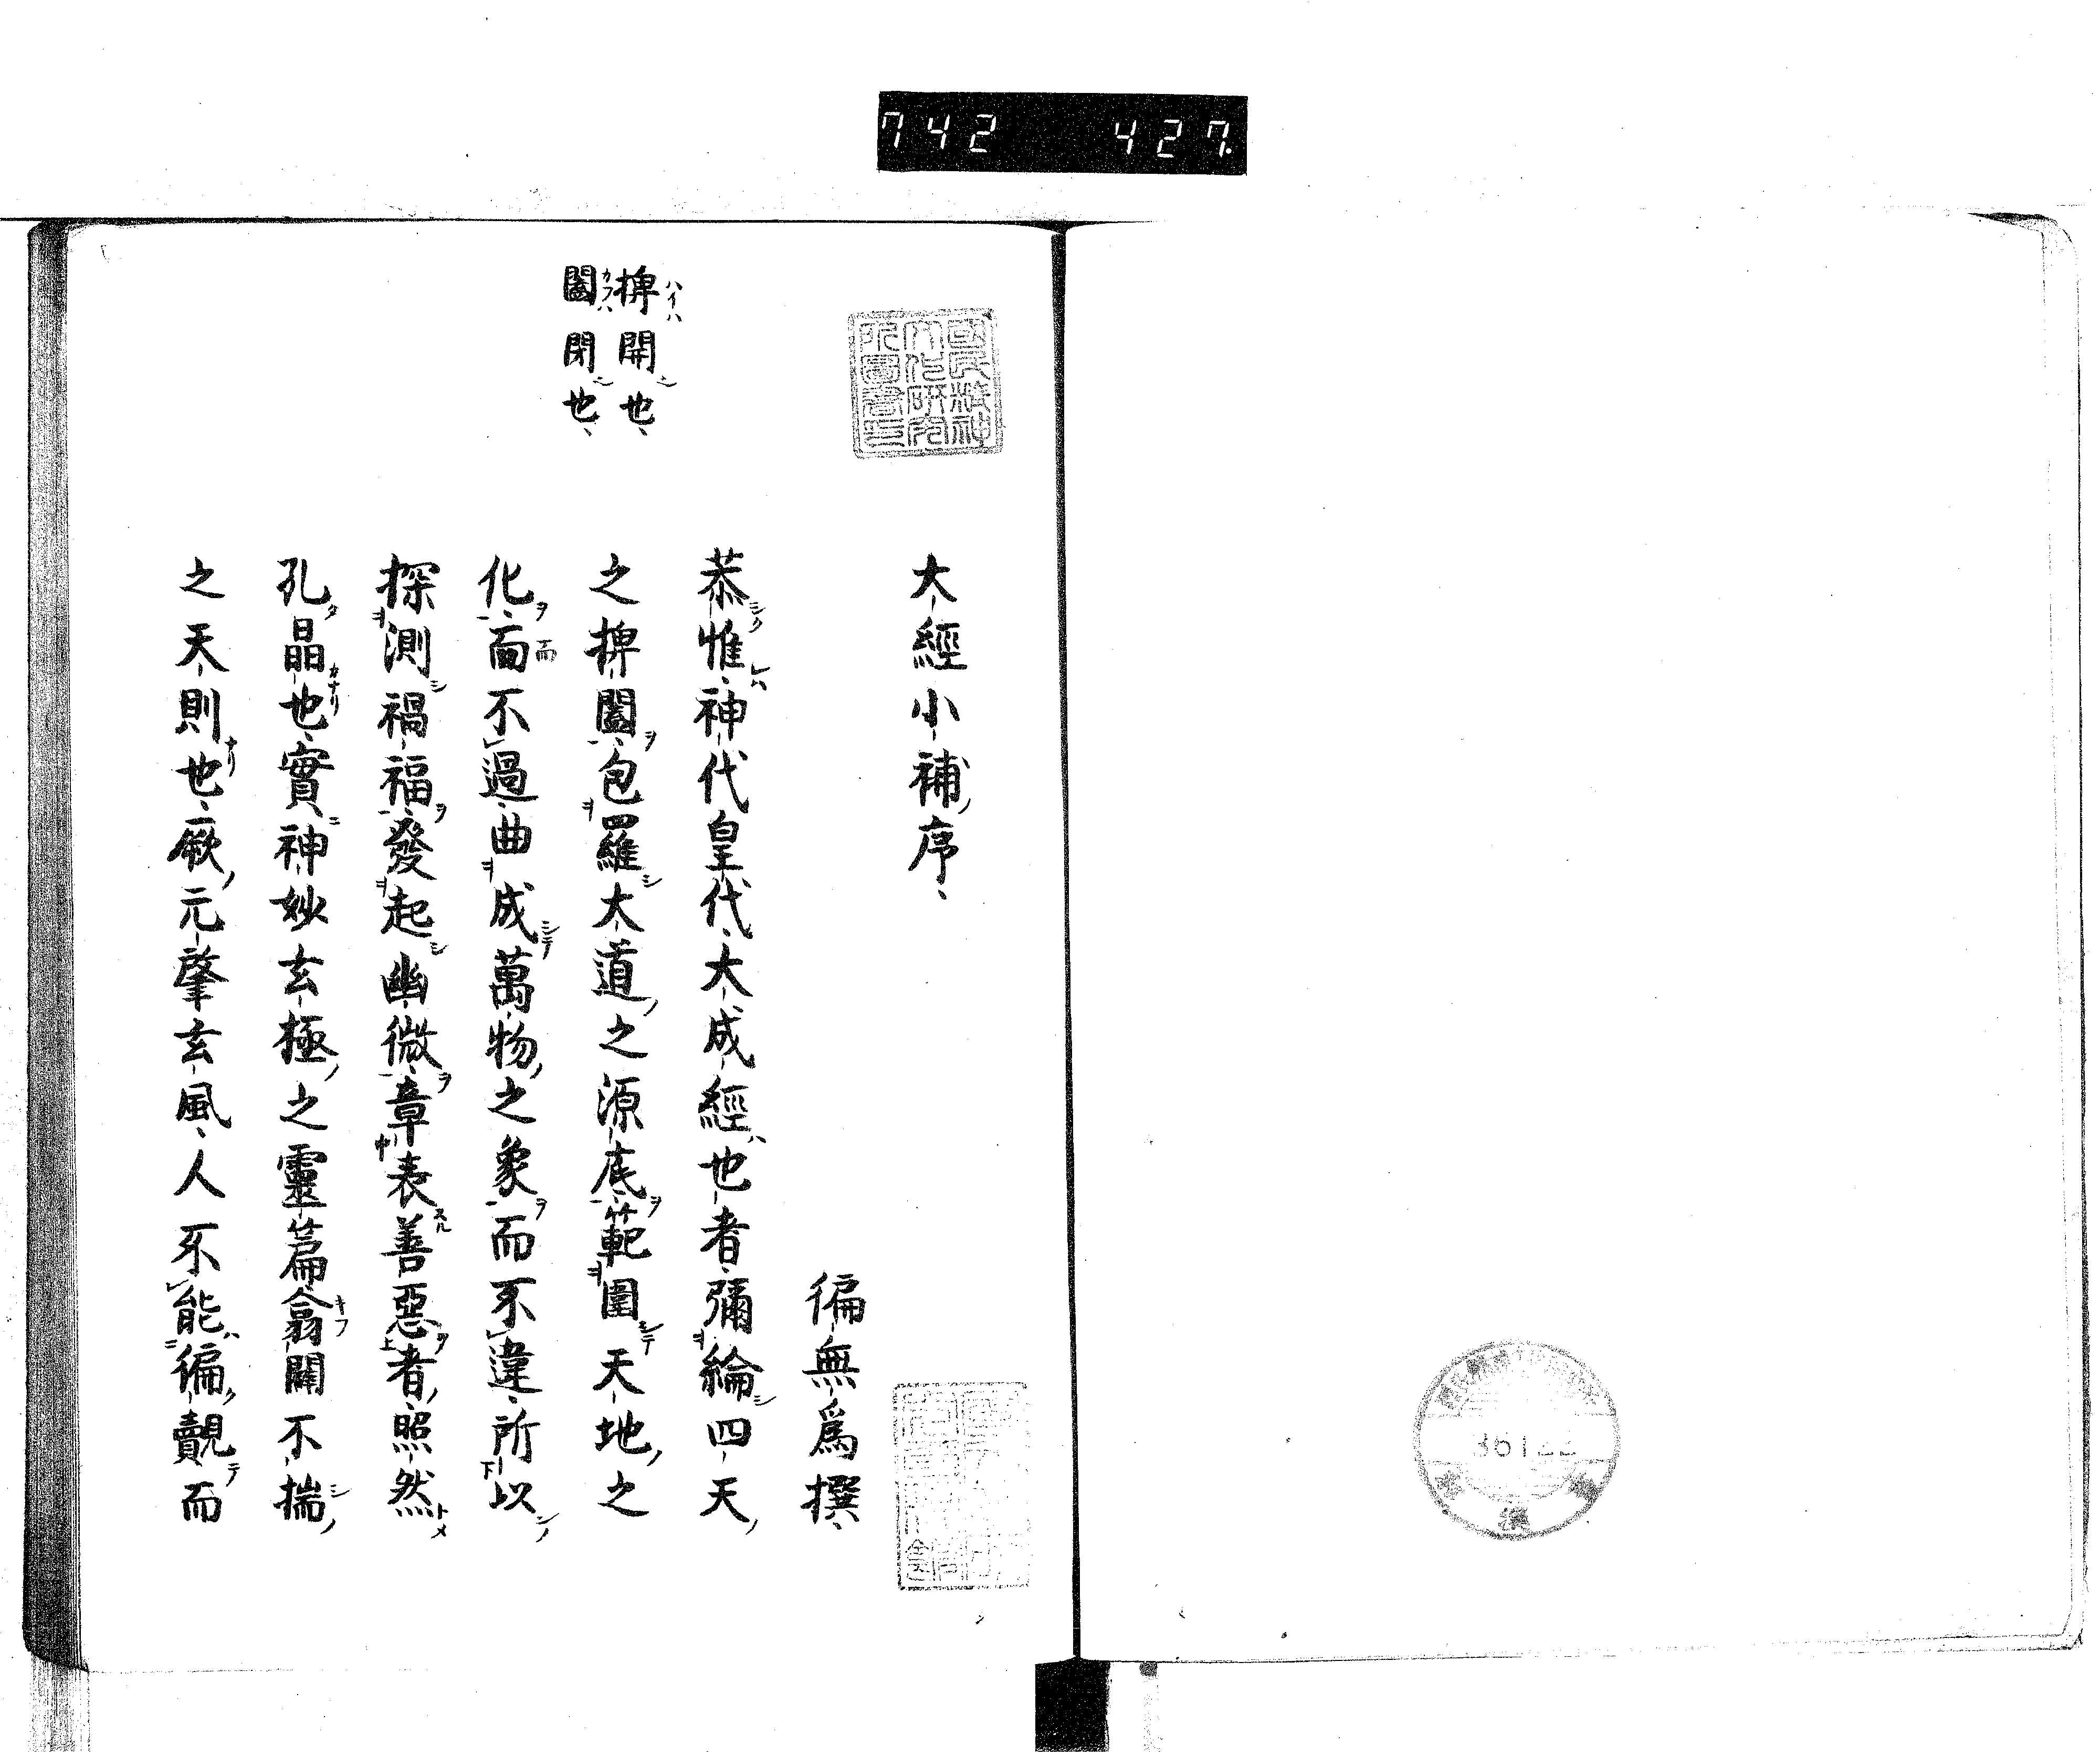 742 427.
捭開也、
闔閉也、
國民精神
文化研究
所圖書印
大經小補序、
徧無爲撰、
恭惟神代皇代大成經也者彌綸四天
之捭闔包羅大道之源底範圍天地之
化而不過曲成萬物之象而不違所以
探測禍福發起幽微章表善惡者照然
孔晶也實神妙玄極之靈篇翕闢不揣
之天則也厥元肇玄風人不能徧覿而